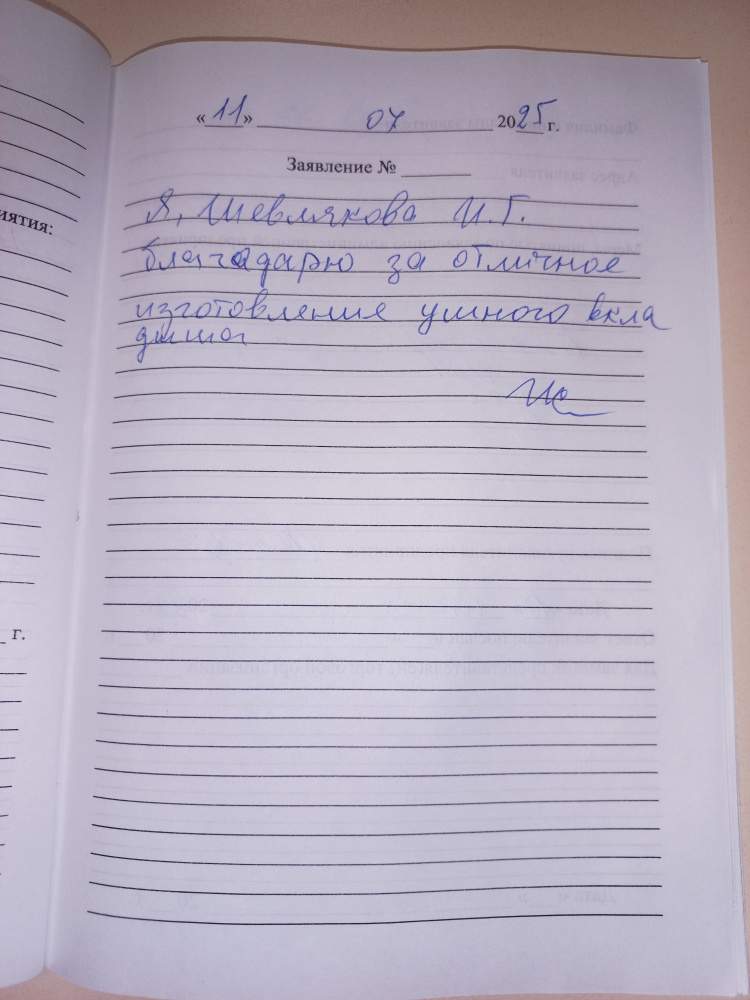 «11» 07 2025 г.
Заявление №
Я, Шевлякова И.Г.
благодарю за отличное
изготовление ушного вкла
дыша
иятия:
г.